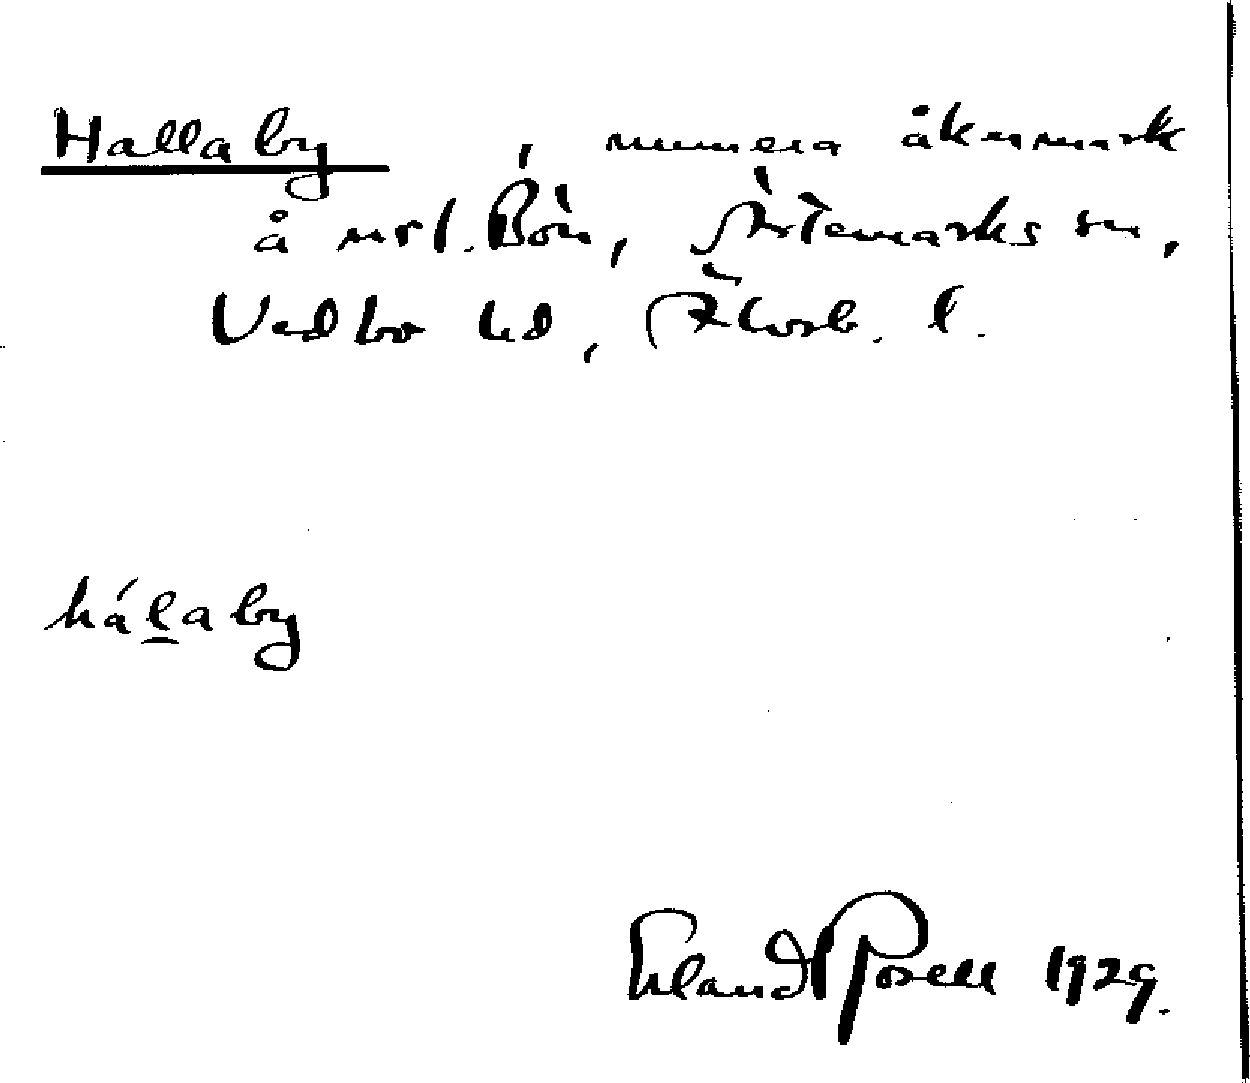 Hallaby, numera åkermark
å norl. Bön, Ärtemarks sn,
Vedbo hd, Älvsb. l.
hál̲aby
Erland Rosell 1929.